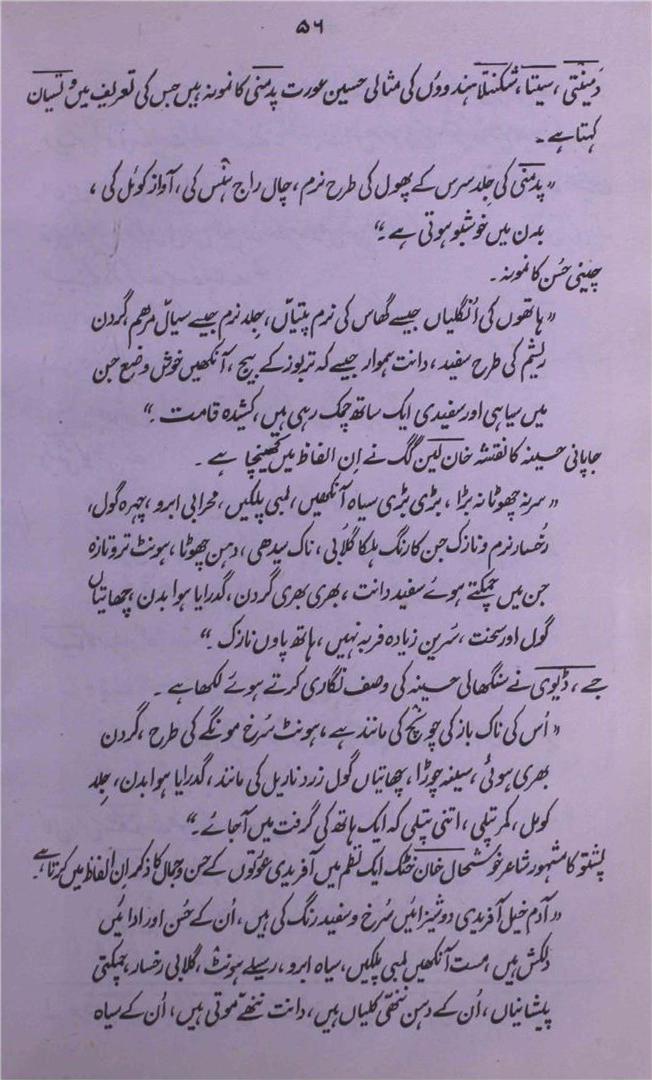 ۵۶
دَمینتی، سیتا، شکنتلا ہندوؤں کی مثالی حسین عورت پدمنی کا نمونہ ہیں جس کی تعریف میں وتسیان
کہتا ہے۔
”پدمنی کی جلد سرس کے پھول کی طرح نرم، چال راج ہنس کی، آواز کوئل کی،
بدن میں خوشبو ہوتی ہے۔“
چینی حُسن کا نمونہ۔
”ہاتھوں کی اُنگلیاں جیسے گھاس کی نرم پتیاں، جِلد نرم جیسے سیال مرھم، گردن
ریشم کی طرح سفید، دانت ہموار جیسے کہ تربوز کے بیج، آنکھیں خوش وضع جن
میں سیاہی اور سفیدی ایک ساتھ چمک رہی ہیں، کشیدہ قامت۔“
جاپانی حسینہ کا نقشہ خان لین گگ نے اِن الفاظ میں کھینچا ہے۔
”سر نہ چھوٹا نہ بڑا، بڑی بڑی سیاہ آنکھیں، لمبی پلکیں، محرابی ابرو، چہرہ گول،
رخسار نرم و نازک جن کا رنگ ہلکا گلابی، ناک سیدھی، دہن چھوٹا، ہونٹ تروتازہ
جن میں چمکتے ہوئے سفید دانت، بھری بھری گردن، گدرایا ہوا بدن، چھاتیاں
گول اور سخت، سُرین زیادہ فربہ نہیں، ہاتھ پاوں نازک۔“
جے، ڈیوی نے سنگھالی حسینہ کی وصف نگاری کرتے ہوئے لکھا ہے۔
”اُس کی ناک باز کی چونچ کی مانند ہے، ہونٹ سُرخ مونگے کی طرح، گردن
بھری ہوئی، سینہ چوڑا، چھاتیاں گول زرد ناریل کی مانند، گدرایا ہوا بدن، جِلد
کومل، کمر پتلی، اتنی پتلی کہ ایک ہاتھ کی گرفت میں آجائے۔“
پشتو کا مشہور شاعر خوشحال خان خٹک ایک نظم میں آفریدی عورتوں کے حسن و جمال کا ذکر اِن الفاظ میں کرتا ہے۔
”آدم خیل آفریدی دوشیزائیں سُرخ و سفید رنگ کی ہیں، اُن کے حُسن اور ادائیں
دلکش ہیں، مست آنکھیں لمبی پلکیں، سیاہ ابرو، رسیلے ہونٹ، گلابی رخسار، چمکتی
پیشانیاں، اُن کے دہن ننھی کلیاں ہیں، دانت ننھے موتی ہیں، اُن کے سیاہ